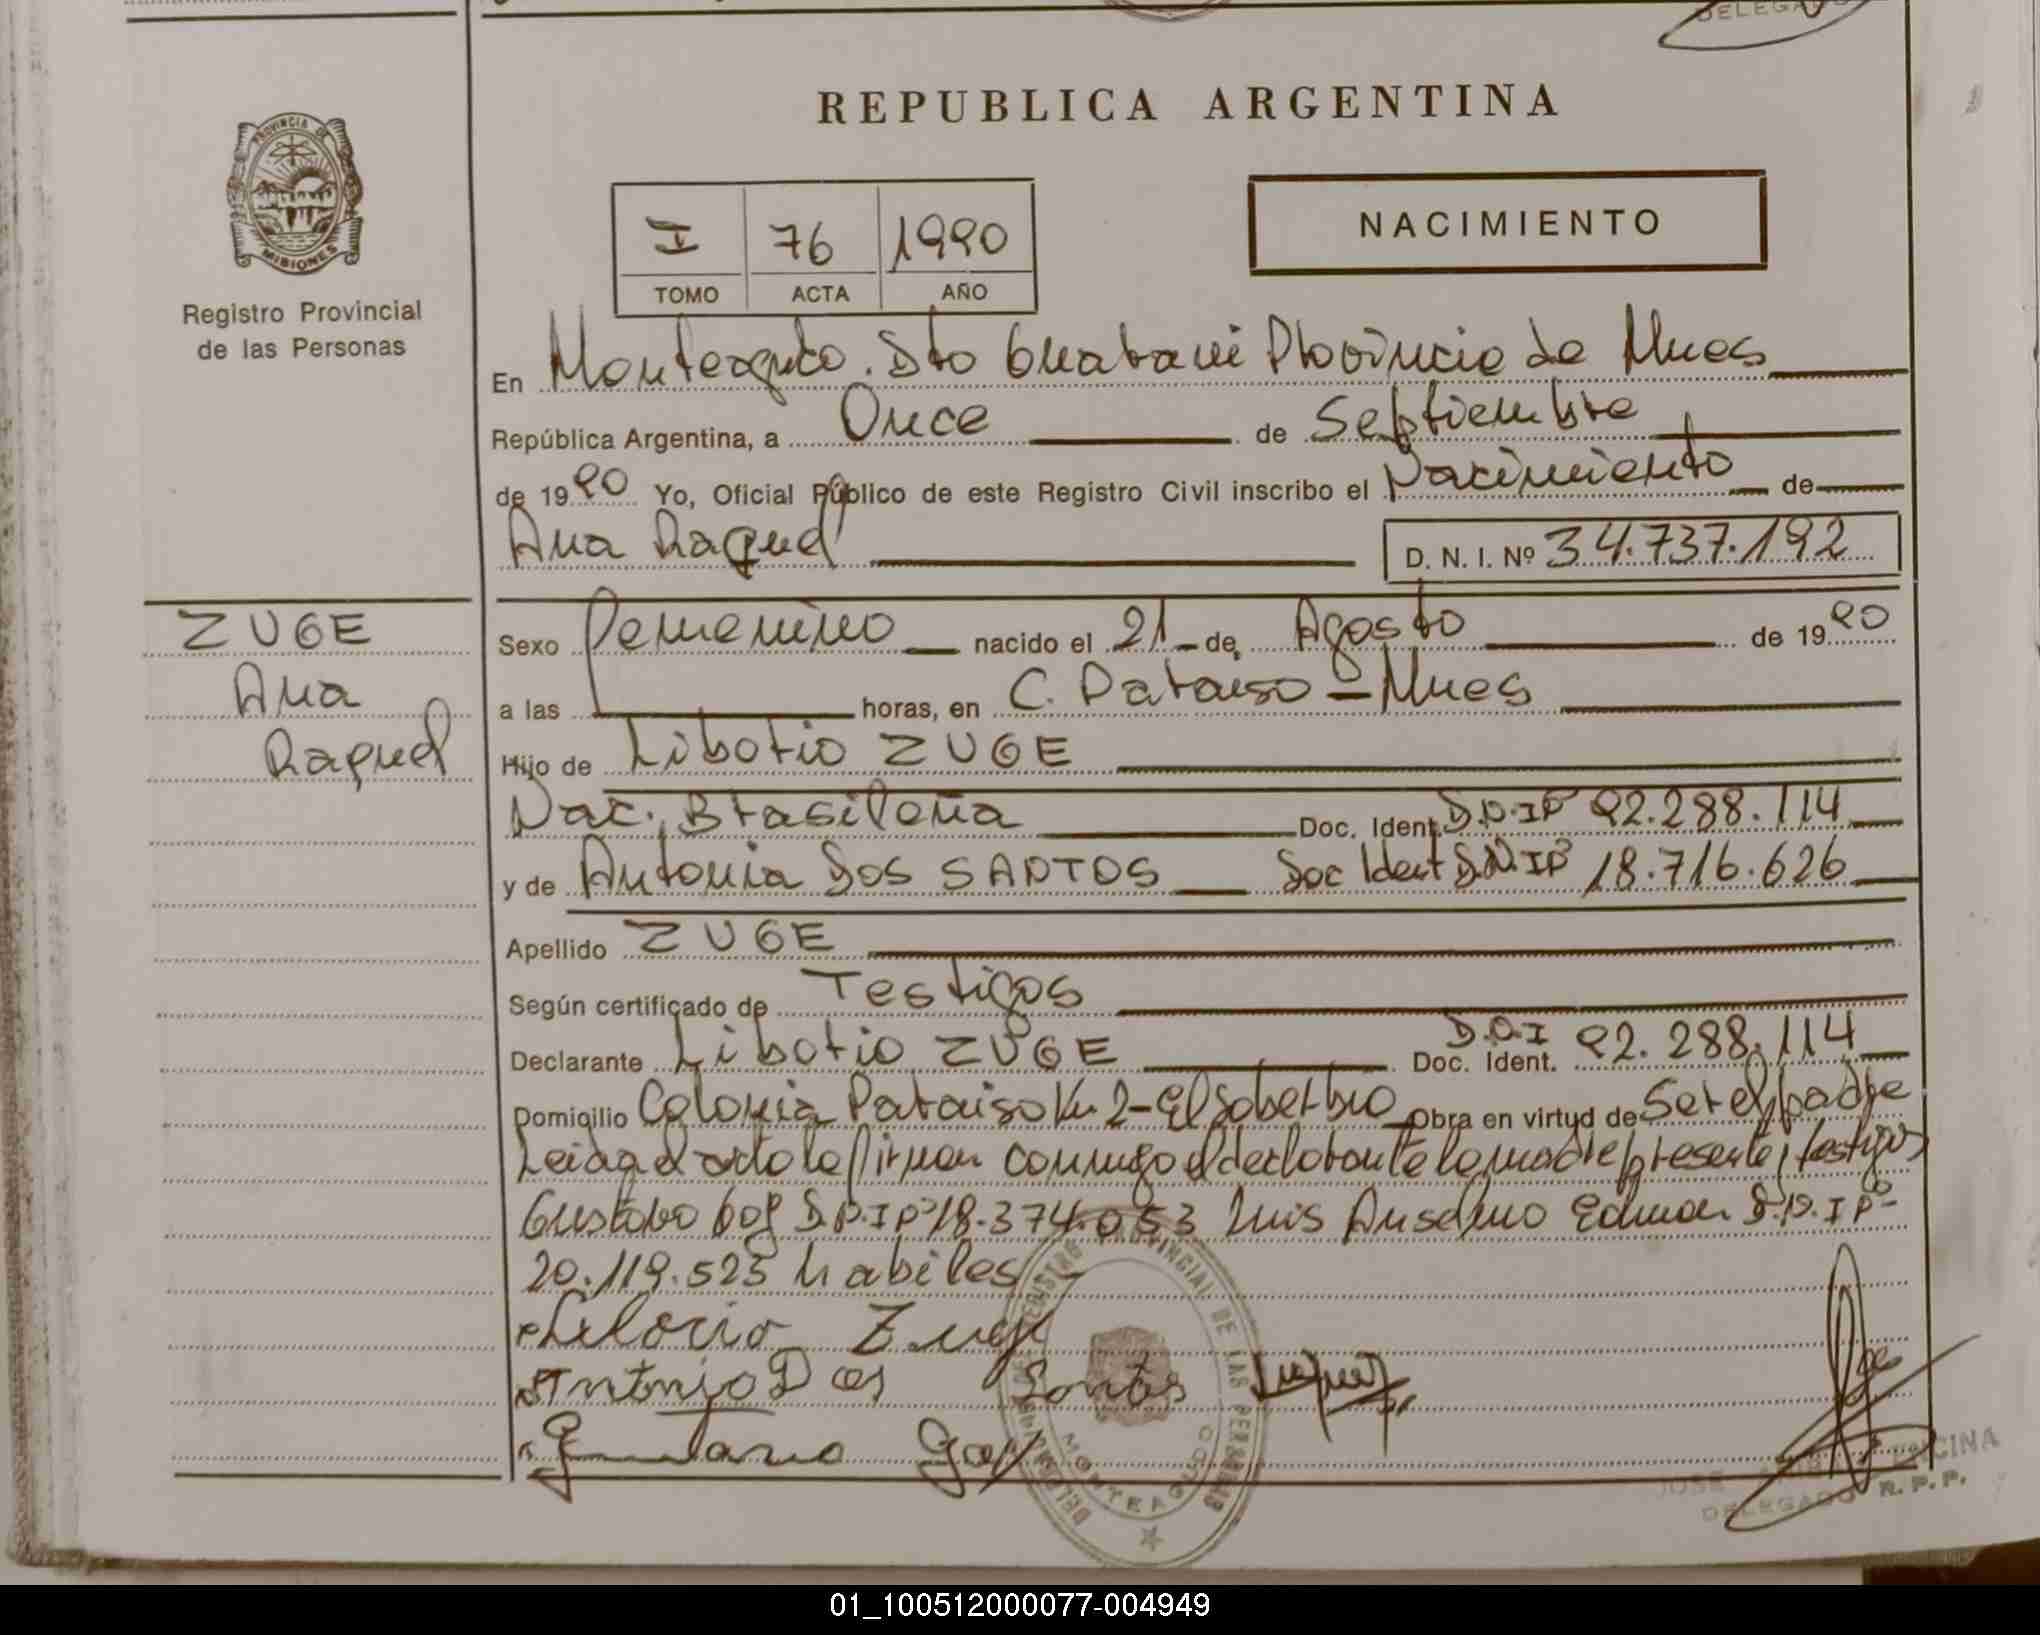 DELEGADO
REPUBLICA ARGENTINA
PROVINCIA DE
MISIONES
Registro Provincial
de las Personas
I 76 1990
TOMO ACTA AÑO
NACIMIENTO
En Monteagudo. Dto Guarani Provincia de Mnes
República Argentina, a Once de Septiembre
de 1990 Yo, Oficial Público de este Registro Civil inscribo el Nacimiento de
Ana Raquel D. N. I. Nº 34.737.192
ZUGE
Ana
Raquel
Sexo Femenino nacido el 21 de Agosto de 1990
a las horas, en C. Paraiso - Mnes
Hijo de Liborio ZUGE
Nac. Brasileña Doc. Ident. D.N.I Nº 92.288.114
y de Antonia Dos SANTOS Doc Ident D.N.I Nº 18.716.626
Apellido ZUGE
Según certificado de Testigos
Declarante Liborio ZUGE Doc. Ident. D.N.I 92.288.114
Domicilio Colonia Paraiso Km 2 - El Soberbio Obra en virtud de Ser el padre
Leida el acta la firman conmigo el declarante la madre presente, testigos
Gustavo D.N.I Nº 18.374.053 Luis Anselmo D.N.I Nº
20.119.523 habiles
Liborio Zuge
Antonia Dos Santos
Gustavo
REGISTRO PROVINCIAL DE LAS PERSONAS
MONTEAGUDO
JOSE
DELEGADO R. P. P.
01_100512000077-004949